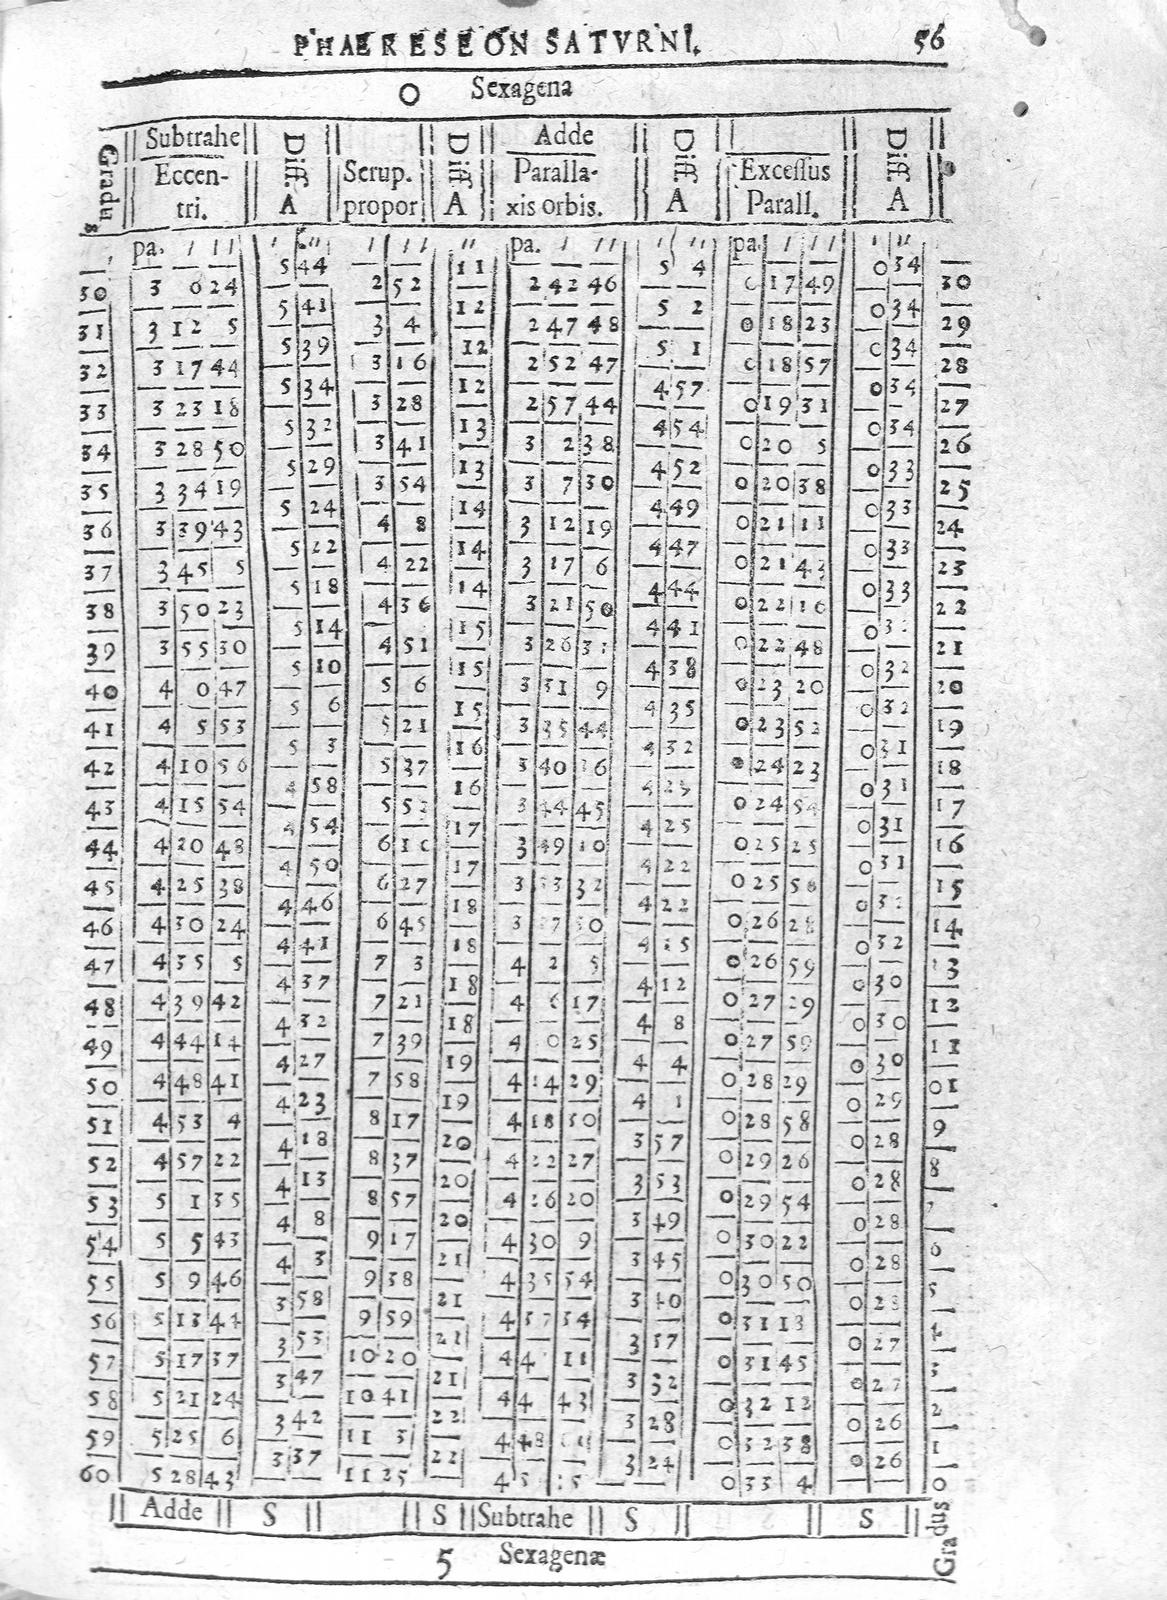 PHAERESEON SATVRNI. 56
O Sexagena
Gradus Subtrahe Eccentri. Diff. A Scrup. propor Diff. A Adde Parallaxis orbis. Diff. A Excessus Parall. Diff. A
pa. / // / // / // // pa. / // / // pa. / // / //
5 44 11 5 4 0 34
30 3 0 24 2 52 2 42 46 0 17 49 30
5 41 12 5 2 0 34
31 3 12 5 3 4 2 47 48 0 18 23 29
5 39 12 5 1 0 34
32 3 17 44 3 16 2 52 47 0 18 57 28
5 34 12 4 57 0 34
33 3 23 18 3 28 2 57 44 0 19 31 27
5 32 13 4 54 0 34
34 3 28 50 3 41 3 2 38 0 20 5 26
5 29 13 4 52 0 33
35 3 34 19 3 54 3 7 30 0 20 38 25
5 24 14 4 49 0 33
36 3 39 43 4 8 3 12 19 0 21 11 24
5 22 14 4 47 0 33
37 3 45 5 4 22 3 17 6 0 21 43 23
5 18 14 4 44 0 33
38 3 50 23 4 36 3 21 50 0 22 16 22
5 14 15 4 41 0
39 3 55 30 4 51 3 26 0 22 48 21
5 10 15 4 38 0 32
40 4 0 47 5 6 3 31 9 0 23 20 20
5 6 15 4 35 0 32
41 4 5 53 5 21 3 35 44 0 23 52 19
5 3 16 4 32 0 31
42 4 10 56 5 37 3 40 16 0 24 23 18
4 58 16 4 0 31
43 4 15 54 5 52 3 44 45 0 24 54 17
4 54 17 4 25 0 31
44 4 20 48 6 10 3 49 10 0 25 25 16
4 50 17 4 22 0 31
45 4 25 38 6 27 3 53 32 0 25 58 15
4 46 18 4 22 0 32
46 4 30 24 6 45 3 57 50 0 26 28 14
4 41 18 4 15 0 32
47 4 35 5 7 3 4 2 5 0 26 59 13
4 37 18 4 12 0 30
48 4 39 42 7 21 4 6 17 0 27 29 12
4 32 18 4 8 0 30
49 4 44 14 7 39 4 0 25 0 27 59 11
4 27 19 4 4 0 30
50 4 48 41 7 58 4 14 29 0 28 29 01
4 23 19 4 1 0 29
51 4 53 4 8 17 4 18 30 0 28 58 9
4 18 20 3 57 0 28
52 4 57 22 8 37 4 22 27 0 29 26 8
4 13 20 3 53 0 28
53 5 1 35 8 57 4 26 20 0 29 54 7
4 8 20 3 49 0 28
54 5 5 43 9 17 4 30 9 0 30 22 6
4 3 21 3 45 0 28
55 5 9 46 9 38 4 35 54 0 30 50 5
3 58 21 3 40 0 28
56 5 13 44 9 59 4 37 34 0 31 18 4
3 53 21 3 37 0 27
57 5 17 37 10 20 4 4 11 0 31 45 3
3 47 21 3 32 0 27
58 5 21 24 10 41 4 4 43 0 32 12 2
3 42 22 3 28 0 26
59 5 25 6 11 3 4 48 0 32 38 1
3 37 22 3 24 0 26
60 5 28 43 11 25 4 5 0 33 4 0
Adde S S Subtrahe S S Gradus
5 Sexagenæ